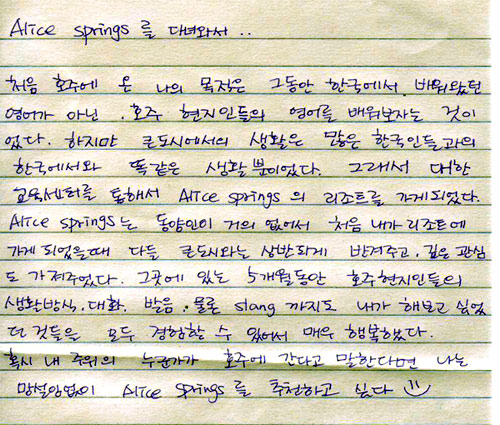 Alice springs 를 다녀와서 ..
처음 호주에 온 나의 목적은 그동안 한국에서 배워왔던
영어가 아닌 . 호주 현지인들의 영어를 배워보자는 것이
었다. 하지만 큰도시에서의 생활은 많은 한국인들과의
한국에서와 똑같은 생활 뿐이었다. 그래서 대한
교육센터를 통해서 Alice springs 의 리조트를 가게되었다.
Alice springs는 동양인이 거의 없어서 처음 내가 리조트에
가게 되었을때 다들 큰도시와는 상반되게 반겨주고, 깊은 관심
도 가져주었다. 그곳에 있는 5개월동안 호주현지인들의
생활방식, 대화, 발음, 물론 slang 까지도 내가 해보고 싶었
던 것들을 모두 경험할 수 있어서 매우 행복했다.
혹시 내 주위의 누군가가 호주에 간다고 말한다면 나는
망설임없이 Alice springs를 추천하고 싶다